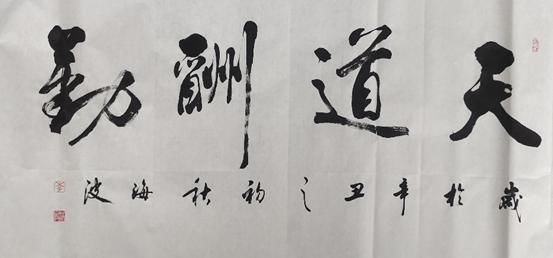 天道酬勤
歲於辛丑之初秋海波